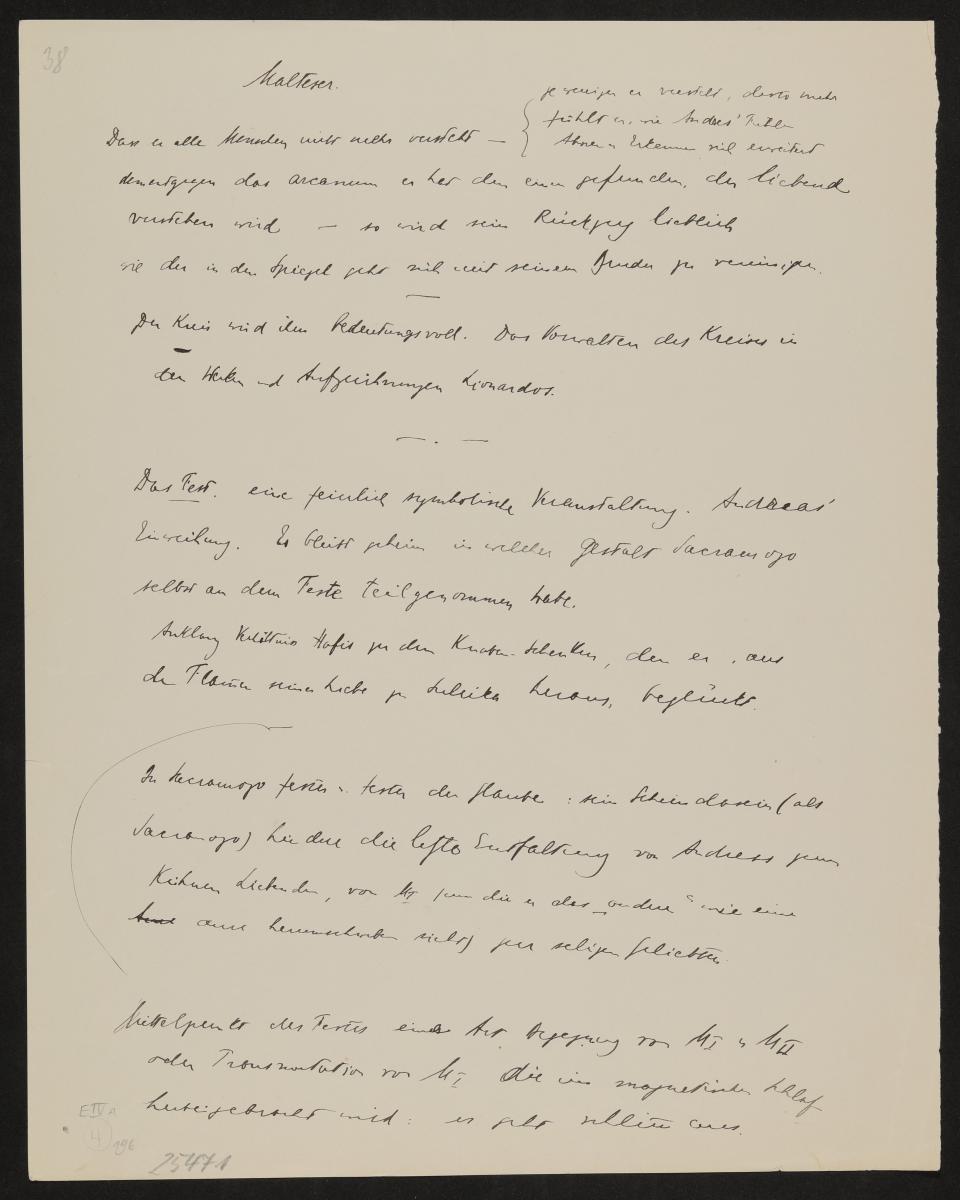 38
Malteser.
je weniger er versteht, desto mehr
fühlt er, wie Andreas' Fühlen
Ahnen u Erkennen sich erweitert
Dass er alle Menschen nicht mehr versteht —
dementgegen das arcanum er hat den einen gefunden, der liebend
verstehen wird — so wird sein Rückzug lieblich
wie der in den Spiegel geht sich mit seinem Bruder zu vereinigen.
Der Kreis wird ihm bedeutungsvoll. Das Vorwalten des Kreises in
den Werken und Aufzeichnungen Lionardos.
Das Fest. eine feierlich symbolische Veranstaltung. Andreas'
Einweihung. Es bleibt geheim in welcher Gestalt Sacramozo
selbst an dem Feste teilgenommen habe.
Anklang Verhältnis Hafis zu dem Knaben-Schenken, den er, aus
der Flamme seiner Liebe zu Suleika heraus, beglückt.
In Sacramozo fester u. fester der Glaube: sein Scheindasein (als
Sacramozo) hindere die letzte Entfaltung von Andreas zum
Kühnen Liebenden, von M I (in die er das „andere" wie eine
arme hereinschweben sieht) zur seligen Geliebten.
Mittelpunkt des Festes eine Art Begegnung von M I u M II
oder Transmutation von M I die im magnetischen Schlaf
herbeigebracht wird: es geht schlimm aus.
E IV A
4
196
25471